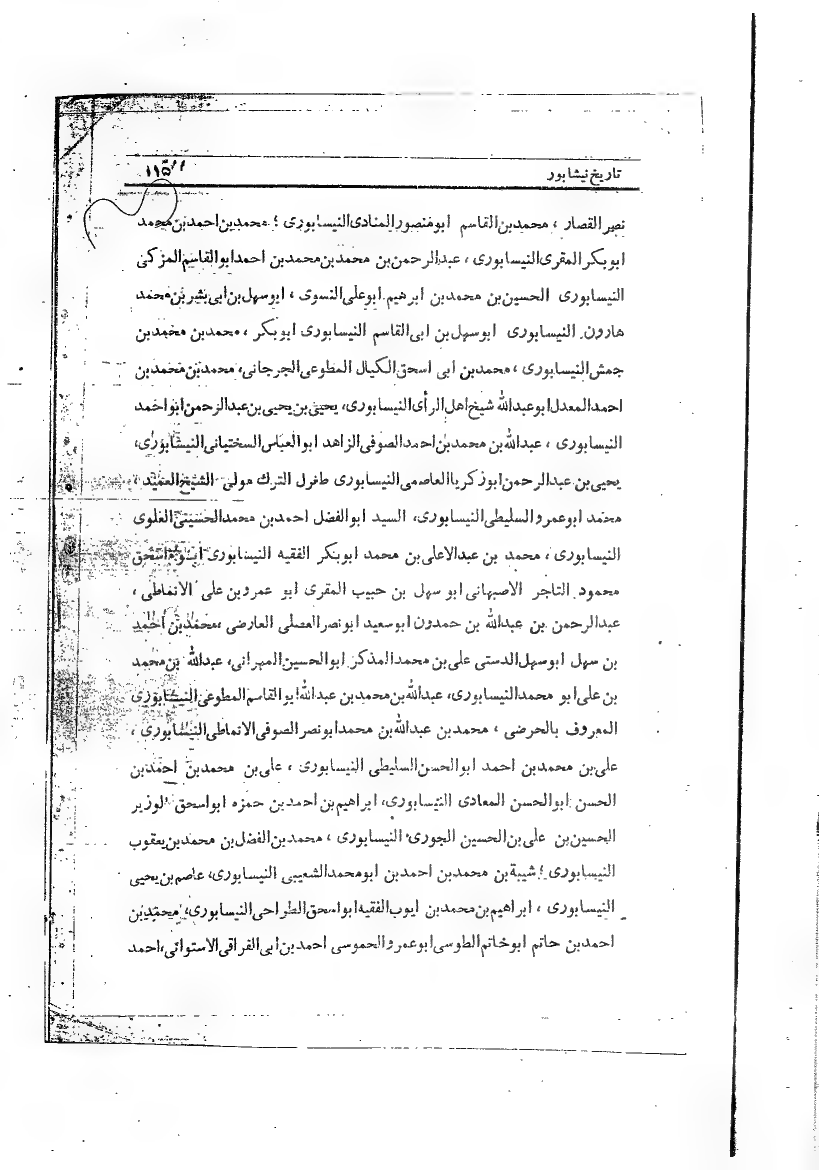 تاریخ نیشابور ۱۱۵
نصر القصار ، محمدبن القاسم ابومنصور المنادی النیسابوری ؛ محمدبن احمدبن محمد
ابوبکر المقری النیسابوری ، عبدالرحمن بن محمدبن محمدبن احمد ابوالقاسم المزکی
النیسابوری الحسین بن محمدبن ابرهیم ابوعلی النسوی ، ابوسهل بن ابی بشر بن محمد
هارون النیسابوری ابوسهل بن ابی القاسم النیسابوری ابوبکر ، محمدبن محمدبن
جمش النیسابوری ، محمدبن ابی اسحق الکیال المطوعی الجرجانی، محمدبن محمدبن
احمد المعدل ابوعبدالله شیخ اهل الرأی النیسابوری، یحیی بن یحیی بن عبدالرحمن ابواحمد
النیسابوری ، عبدالله بن محمدبن احمد الصوفی الزاهد ابوالعباس السختیانی النیشابوری،
یحیی بن عبدالرحمن ابوزکریا العاصمی النیسابوری طغرل الترک مولی الشیخ العمید ،
محمد ابوعمرو السلیطی النیسابوری، السید ابوالفضل احمدبن محمد الحسینی العلوی
النیسابوری ، محمد بن عبدالاعلی بن محمد ابوبکر الفقیه النیسابوری ابو اسحق
محمود التاجر الاصبهانی ابو سهل بن حبیب المقری ابو عمرو بن علی الانماطی ،
عبدالرحمن بن عبدالله بن حمدون ابوسعید ابونصر العصلی العارضی ، محمدبن احمد
بن سهل ابوسهل الدستی علی بن محمد المذکر ابوالحسین المهرانی، عبدالله بن محمد
بن علی ابو محمد النیسابوری، عبدالله بن محمدبن عبدالله ابوالقاسم المطوعی النیشابوری
المعروف بالحرضی ، محمدبن عبدالله بن محمد ابونصر الصوفی الانماطی النیشابوری ،
علی بن محمدبن احمد ابوالحسن السلیطی النیسابوری ، علی بن محمدبن احمدبن
الحسن ابوالحسن المعادی النیسابوری، ابراهیم بن احمدبن حمزه ابواسحق الوزیر
الحسین بن علی بن الحسین الجوری النیسابوری ، محمدبن الفضل بن محمدبن یعقوب
النیسابوری ؛ شیبة بن محمدبن احمدبن ابومحمد الشعیبی النیسابوری، عاصم بن یحیی
النیسابوری ، ابراهیم بن محمدبن ایوب الفقیه ابواسحق الطراحی النیسابوری، محمدبن
احمدبن حاتم ابوحاتم الطوسی ابوعمرو الحموسی احمدبن ابی الفراقی الاستوائی، احمد